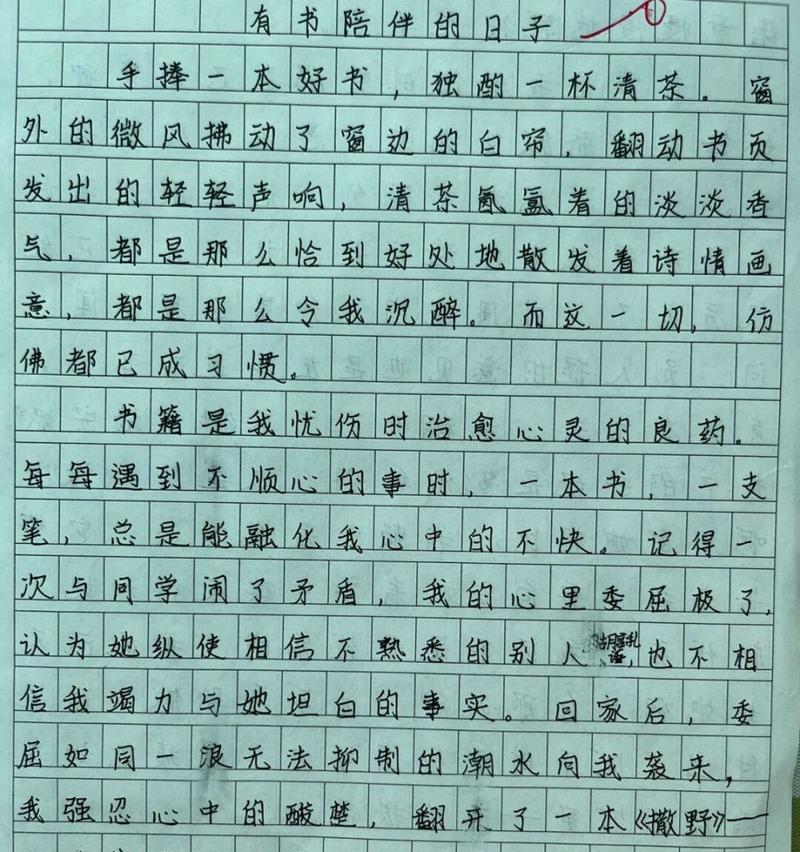 有书陪伴的日子
手捧一本好书，独酌一杯清茶。窗
外的微风拂动了窗边的白帘，翻动书页
发出的轻轻声响，清茶氤氲着的淡淡香
气，都是那么恰到好处地散发着诗情画
意，都是那么令我沉醉。而这一切，仿
佛都已成习惯。
书籍是我忧伤时治愈心灵的良药。
每每遇到不顺心的事时，一本书，一支
笔，总是能融化我心中的不快。记得一
次与同学闹了矛盾，我的心里委屈极了，
认为她纵使相信不熟悉的别人胡言乱语，也不相
信我竭力与她坦白的事实。回家后，委
屈如同一浪无法抑制的潮水向我袭来，
我强忍心中的酸楚，翻开了一本《撒野》——